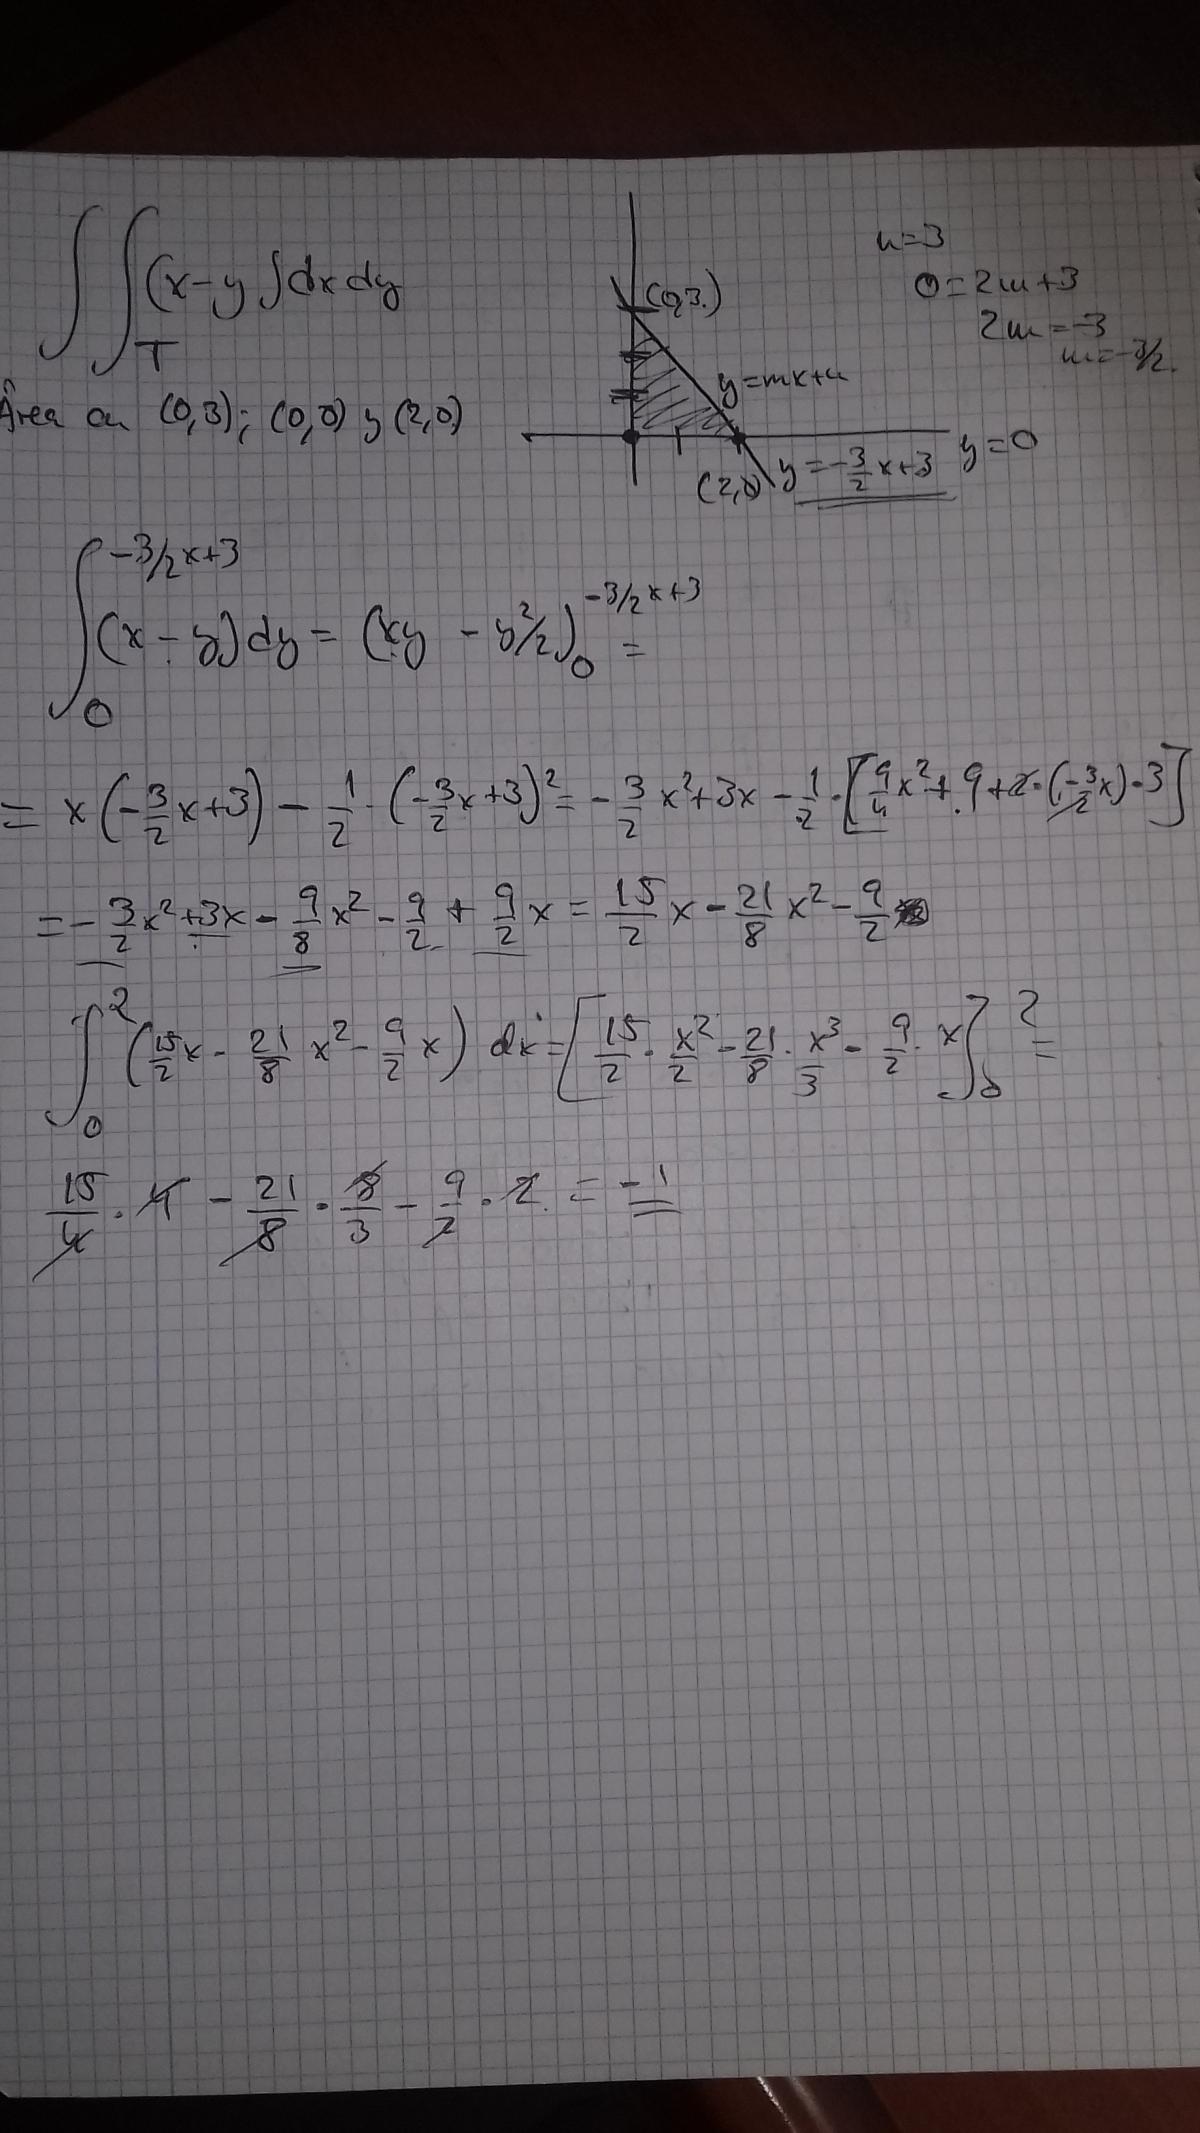 ∫∫_T (x-y)dxdy
Área en (0,3); (0,0) y (2,0)
(0,3)
y=mx+n
(2,0)
y=-3/2x+3
y=0
n=3
0=2m+3
2m=-3
m=-3/2.
∫_0^{-3/2x+3} (x-y)dy = (xy - y²/2)_0^{-3/2x+3} =
= x(-3/2x+3) - 1/2·(-3/2x+3)² = -3/2x²+3x - 1/2·[9/4x²+9+2·(-3/2x)·3]
= -3/2x²+3x - 9/8x² - 9/2 + 9/2x = 15/2x - 21/8x² - 9/2
∫_0^2 (15/2x - 21/8x² - 9/2x) dx = [15/2·x²/2 - 21/8·x³/3 - 9/2·x]_0^2 =
15/4·4 - 21/8·8/3 - 9/2·2 = -1